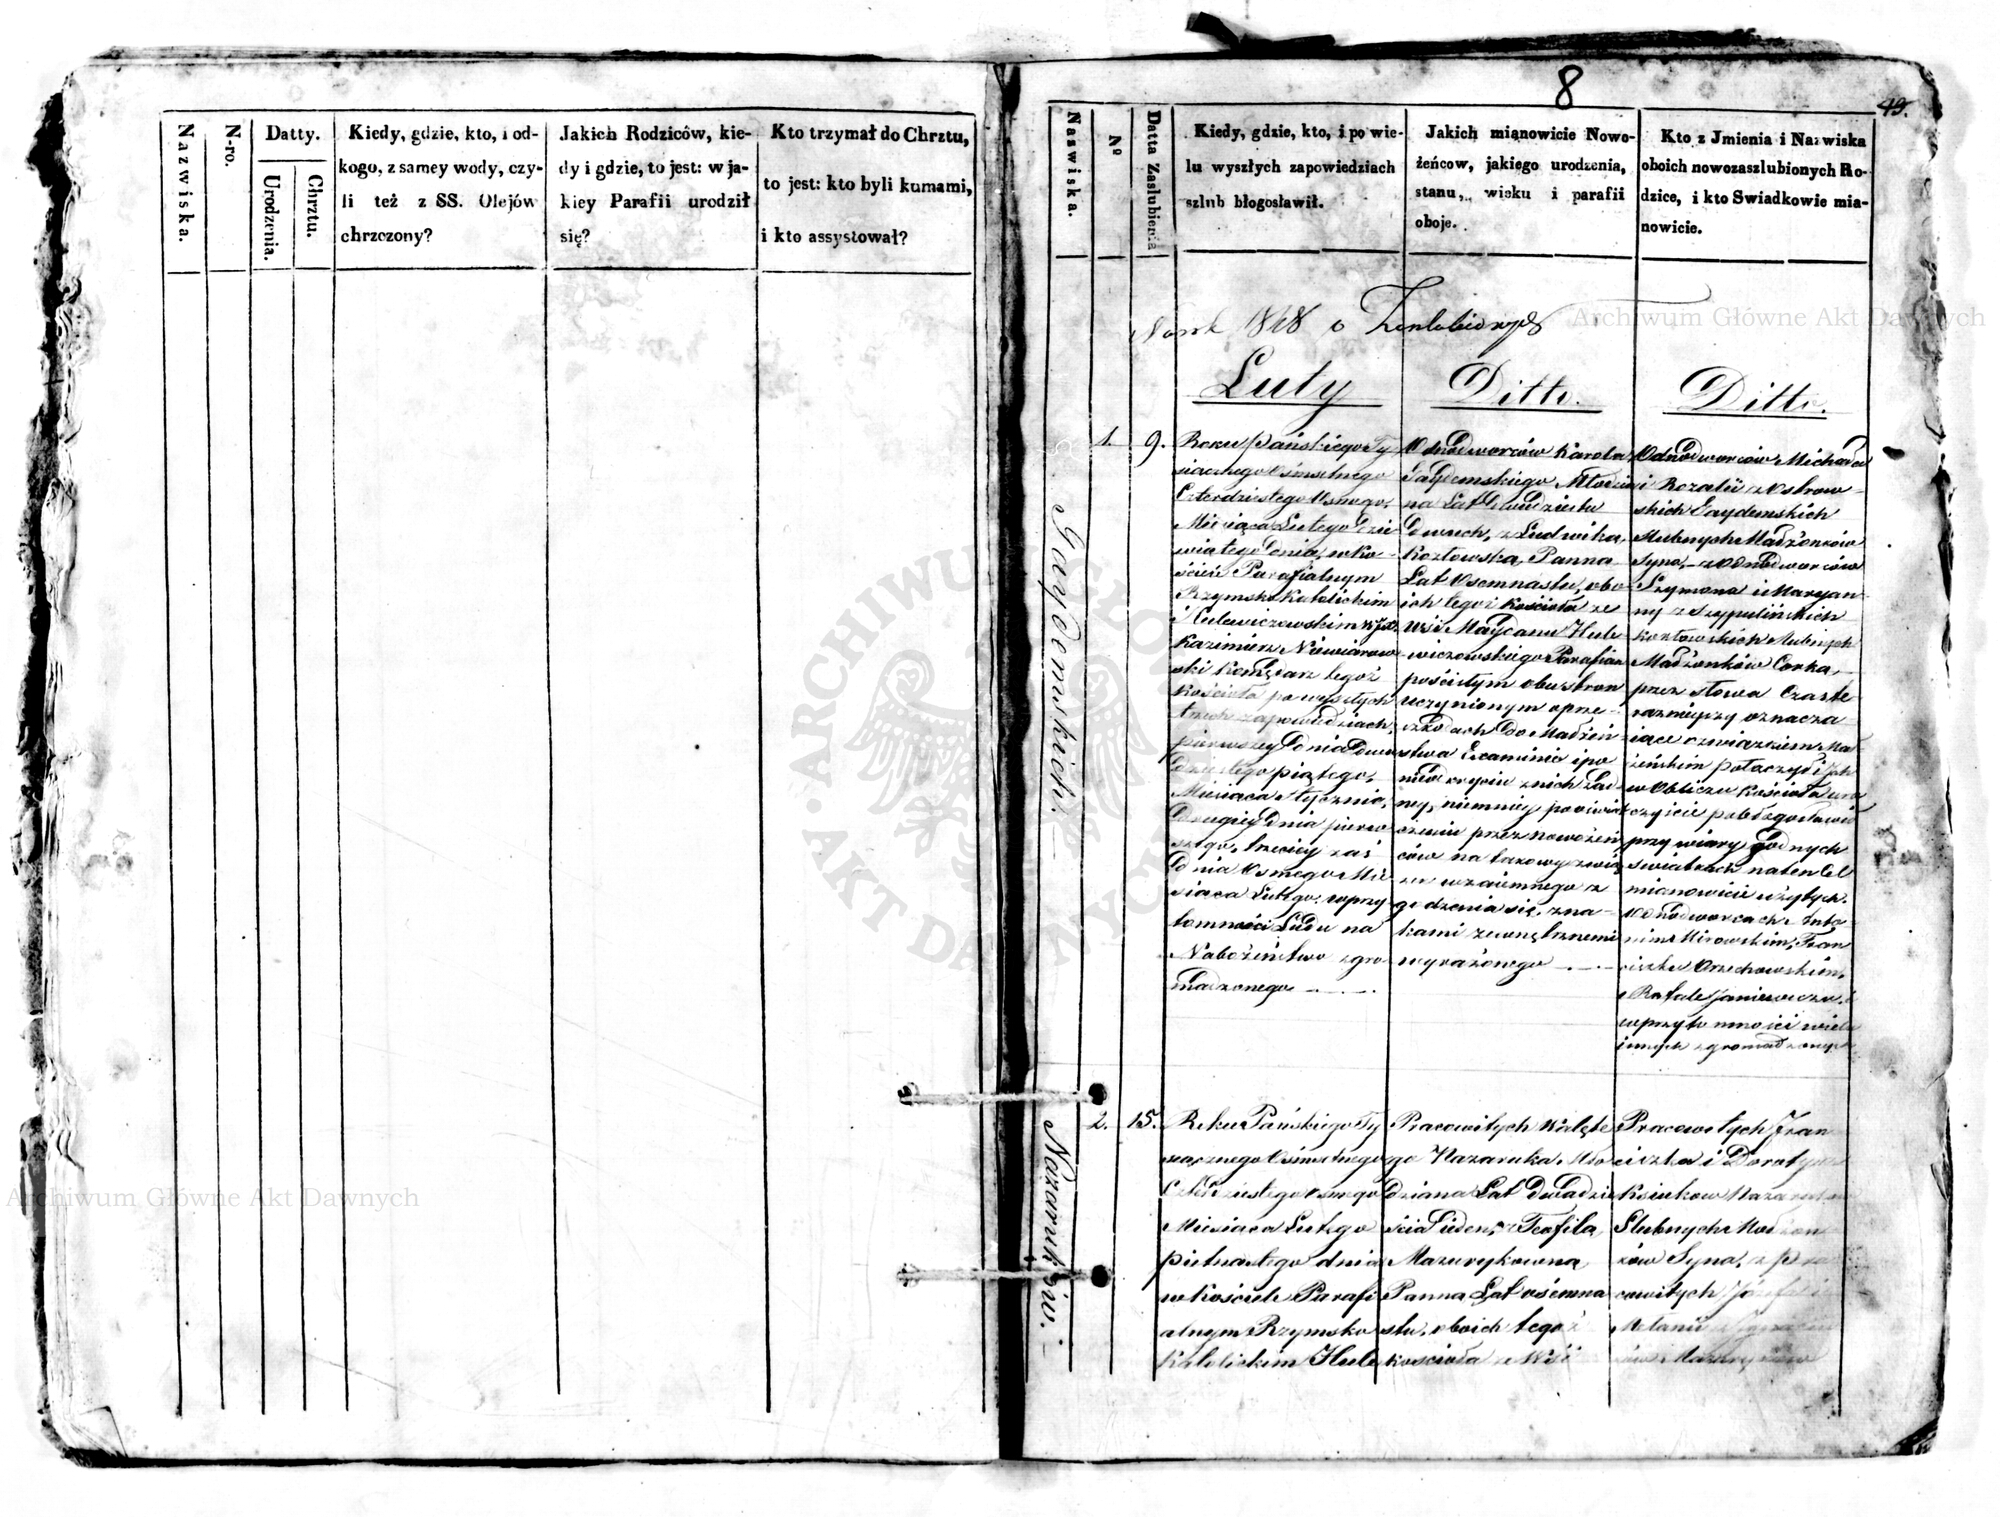 8
49.
Nazwiska.
N-ro.
Datty.
Urodzenia.
Chrztu.
Kiedy, gdzie, kto, i od-
kogo, z samey wody, czy-
li też z SS. Olejów
chrzczony?
Jakich Rodziców, kie-
dy i gdzie, to jest: w ja-
kiey Parafii urodził
się?
Kto trzymał do Chrztu,
to jest: kto byli kumami,
i kto assystował?
Nazwiska.
Nº
Datta Zaslubienia
Kiedy, gdzie, kto, i po wie-
lu wyszłych zapowiedziach
szlub błogosławił.
Jakich mianowicie Nowo-
żeńcow, jakiego urodzenia,
stanu, wieku i parafii
oboje.
Kto z Jmienia i Nazwiska
oboich nowozaszlubionych Ro-
dzice, i kto Swiadkowie mia-
nowicie.
Archiwum Główne Akt Dawnych
1848 o
Luty
Ditto.
Ditto.
Gaydemskich.
1.
9.
Roku Pańskiego Ty
siącznego Osmsetnego
Czterdziestego Osmego,
Miesiąca Lutego Dzie
wiątego Dnia, w Ko-
ściele Parafialnym
Rzymsko Katolickim
Hulewiczowskim WJX.
Kazimierz Niewiarow
ski Komędarz tegoż
Kościoła po wyszłych
trzech zapowiedziach,
pierwszey Dnia Dwu
dziestego piątego,
Miesiąca Stycznia,
Drugiey Dnia pierw
szego, trzeciey zaś
Dnia Osmego Mie
siąca Lutego, w przy
tomności Ludu na
Nabożeństwo zgro
madzonego
Odnodworców Karola
Gaydemskiego Młodzia
na Lat Dwudziestu
Dwuch, z Ludwiką
Kozłowską Panną
Lat Osemnastu, obo
ich tegoż Kościoła ze
Wsi Maydanu Hule
wiczowskiego Parafian
po ścisłym obustron
uczynionym o prze-
szkodach Do Małżeń
stwa Examinie i po
nieodkryciu z nich żad
ney, niemniey po oświad
czeniu przez nowożeń
ców na takowy zwią
zek wzaiemnego z
godzenia się, zna-
kami zewnętrznemi
wyrażonego
Odnodworców Michała
i Rozalii z Ostrow-
skich Gaydemskich
Slubnych Małżonków
Syna, z Odnodworców
Szymona i Maryan-
ny z Szypulińskich
Kozłowskich Slubnych
Małżonków Corką,
przez słowa Czasu te
raznieyszy oznacza-
iące związkiem Ma
żeńskim połączył i Ich
w Obliczu Kościoła uro
czyście pobłogosławił
przy wiary godnych
świadkach na ten Cel
mianowicie użytych.
Odnodworcach Anto-
nim Mirowskim, Fran
ciszku Orzechowskim,
Rafale Janiewiczu, i
w przytomności wielu
innych zgromadzonych
Nazaruków.
2.
15.
Roku Pańskiego Ty
siącznego Osmsetnego
Czterdziestego Osmego
Miesiąca Lutego
pietnastego dnia
w Kościele Parafi
alnym Rzymsko
Katolickim Hule
Pracowitych Walęte
go Nazaruka Mło
dziana Lat Dwadzie
ścia Siedem, z Teofilą
Mazurykowną
Panną Lat osiemna
stu, oboich tegoż
kościoła ze Wsi
Pracowitych Fran
ciszka i Doroty z
Ksiukow Nazaruków
Slubnych Małżon
ków Syna, z Pra
cowitych Józefa i
Melanii
Mazuryków
Archiwum Główne Akt Dawnych
ARCHIWUM GŁÓWNE AKT DAWNYCH